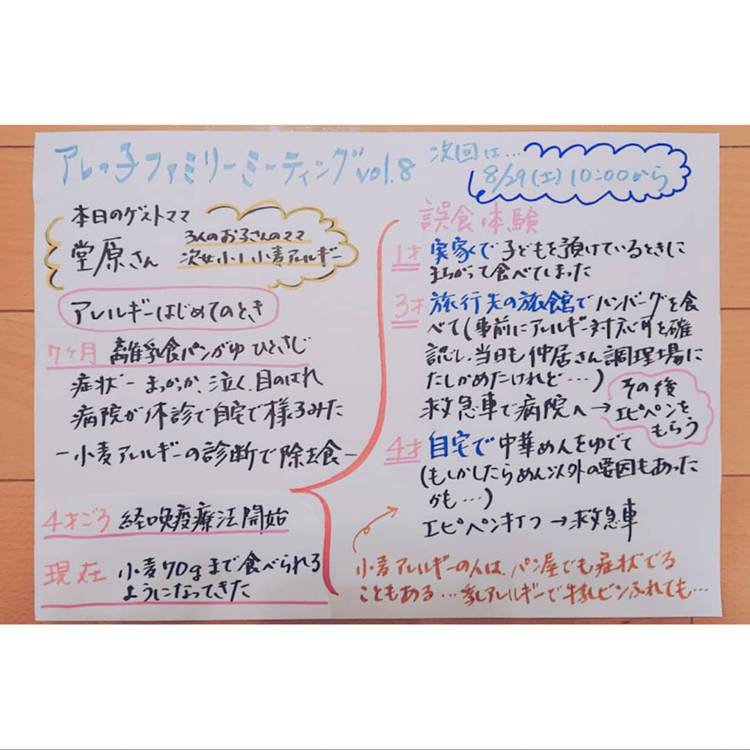 アレっ子ファミリーミーティングvol.8
次回は…
8/29(土)10:00から
本日のゲストママ
堂原さん
3人のお子さんのママ
次女小1 小麦アレルギー
アレルギーはじめてのとき
7ヶ月 離乳食パンがゆ ひとさじ
症状ー まっかっか、泣く、目のはれ
病院が休診で自宅で様子みた
ー小麦アレルギーの診断で除去食ー
4才ごろ 経口免疫療法開始
現在 小麦70gまで食べられる
ようになってきた
誤食体験
1才 実家で子どもを預けているときに
まちがって食べてしまった
3才 旅行先の旅館でハンバーグを食
べて(事前にアレルギー対応可を確
認し、当日も仲居さん調理場に
たしかめたけれど…)
救急車で病院へ→
その後
エピペンを
もらう
4才 自宅で中華めんをゆでて
(もしかしたらめん以外の要因もあった
かも…)
エピペン打つ→救急車
小麦アレルギーの人は、パン屋でも症状でる
こともある…乳アレルギーで牛乳ビンふれても…